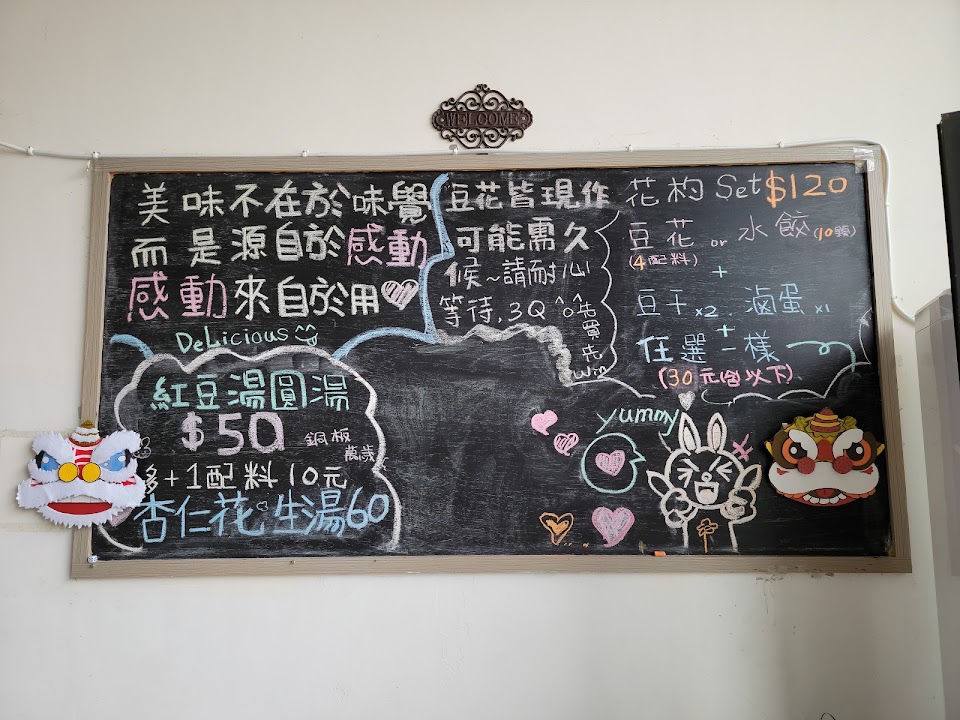 WELCOME
美味不在於味覺
而是源自於感動
感動來自於用
DeLicious
豆花皆現作
可能需久
候~請耐心
等待,3Q ^o^
先買先
Win
花杓 Set $120
豆花 or 水餃 (10顆)
(4配料)
+
豆干x2. 滷蛋x1
+
任選一樣
(30元含以下)
紅豆湯圓湯
$50 銅板
萬歲
多+1配料10元
杏仁花生湯60
yummy